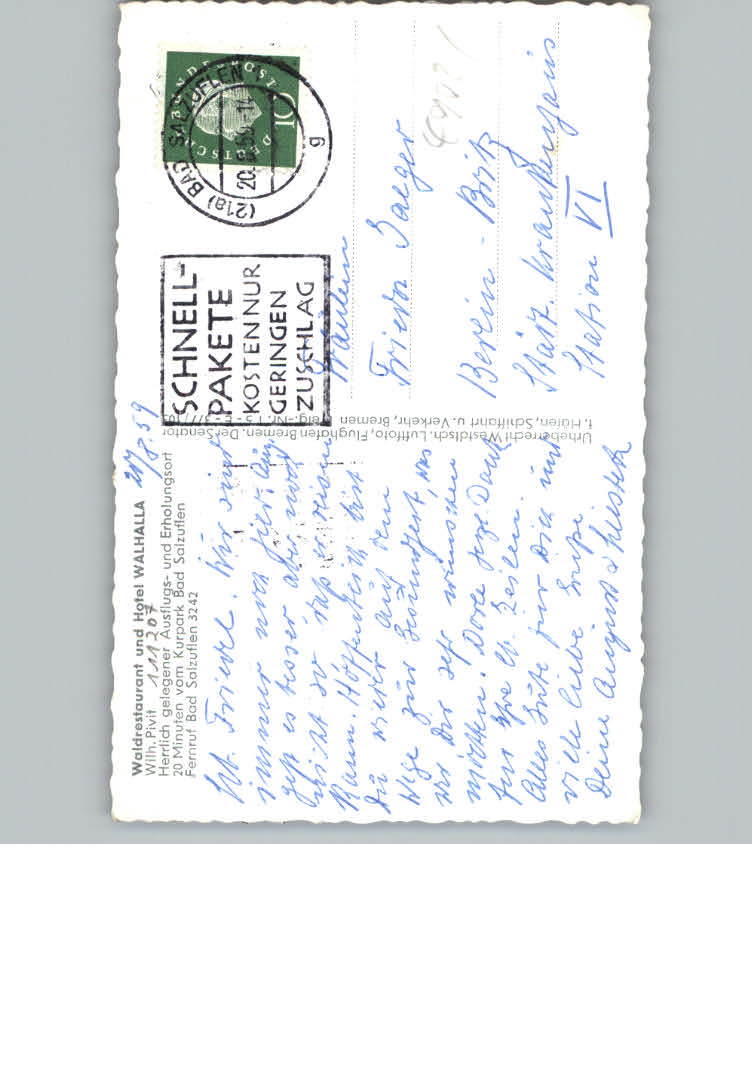 Waldrestaurant und Hotel WALHALLA
Wilh. Pivit 111207
Herrlich gelegener Ausflugs- und Erholungsort
20 Minuten vom Kurpark Bad Salzuflen
Fernruf Bad Salzuflen 3242
20/8.59
Lb. Friedel. Wir sind
immer noch hier. Aug.
geht es besser aber noch
nicht so daß er reisen
kann. Hoffentlich bist
Du wieder auf dem
Wege zur Gesundheit, was
wir Dir sehr wünschen
möchten. Dorle sagt Dank
für Ihre lb. Zeilen.
Alles Gute für Dich und
viele liebe Grüße
Deine August & Liesbeth
Urheberrecht Westdtsch. Luftfoto, Flughafen Bremen. Der Senator
f. Häfen, Schiffahrt u. Verkehr, Bremen
SCHNELL-
PAKETE
KOSTEN NUR
GERINGEN
ZUSCHLAG
(21a) BAD SALZUFLEN 1
20.8.59
g
DEUTSCHE BUNDESPOST
10
Fräulein
Frieda Jaeger
Berlin - Britz
Städt. Krankenhaus
Station VI